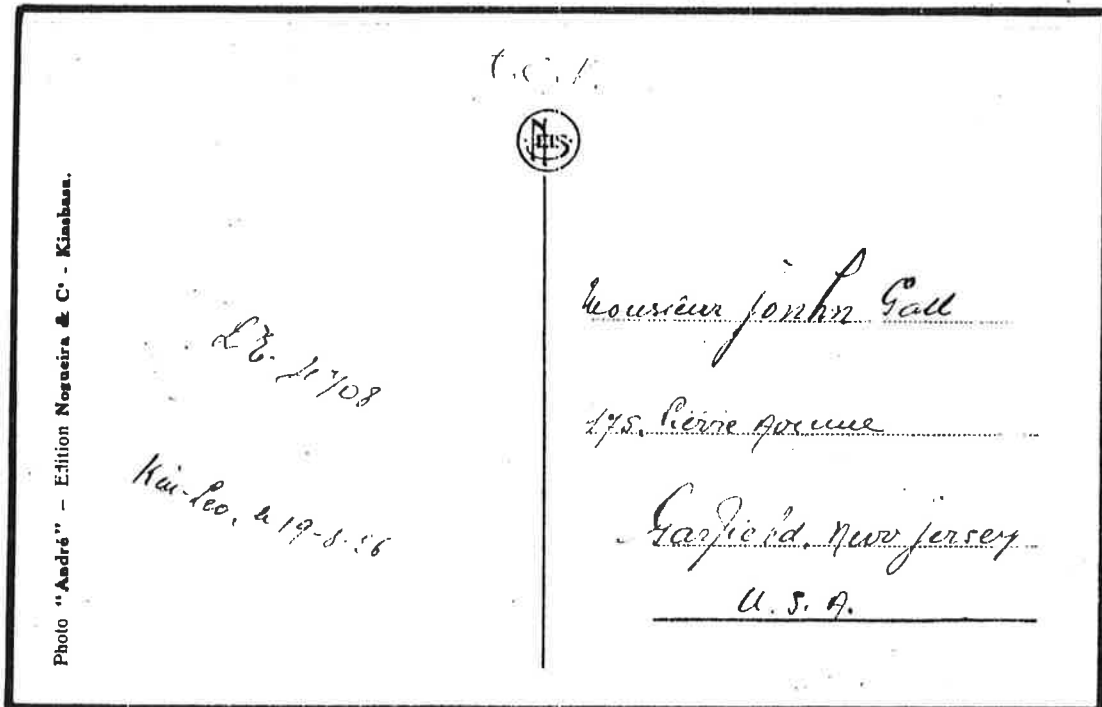 Photo "André" – Edition Nogueira & Cº - Kinshasa.
NELS
Kin-Leo, le 19-8-56
Monsieur Jonhn Gall
175. Pierre Avenue
Garfield. New Jersey
U. S. A.